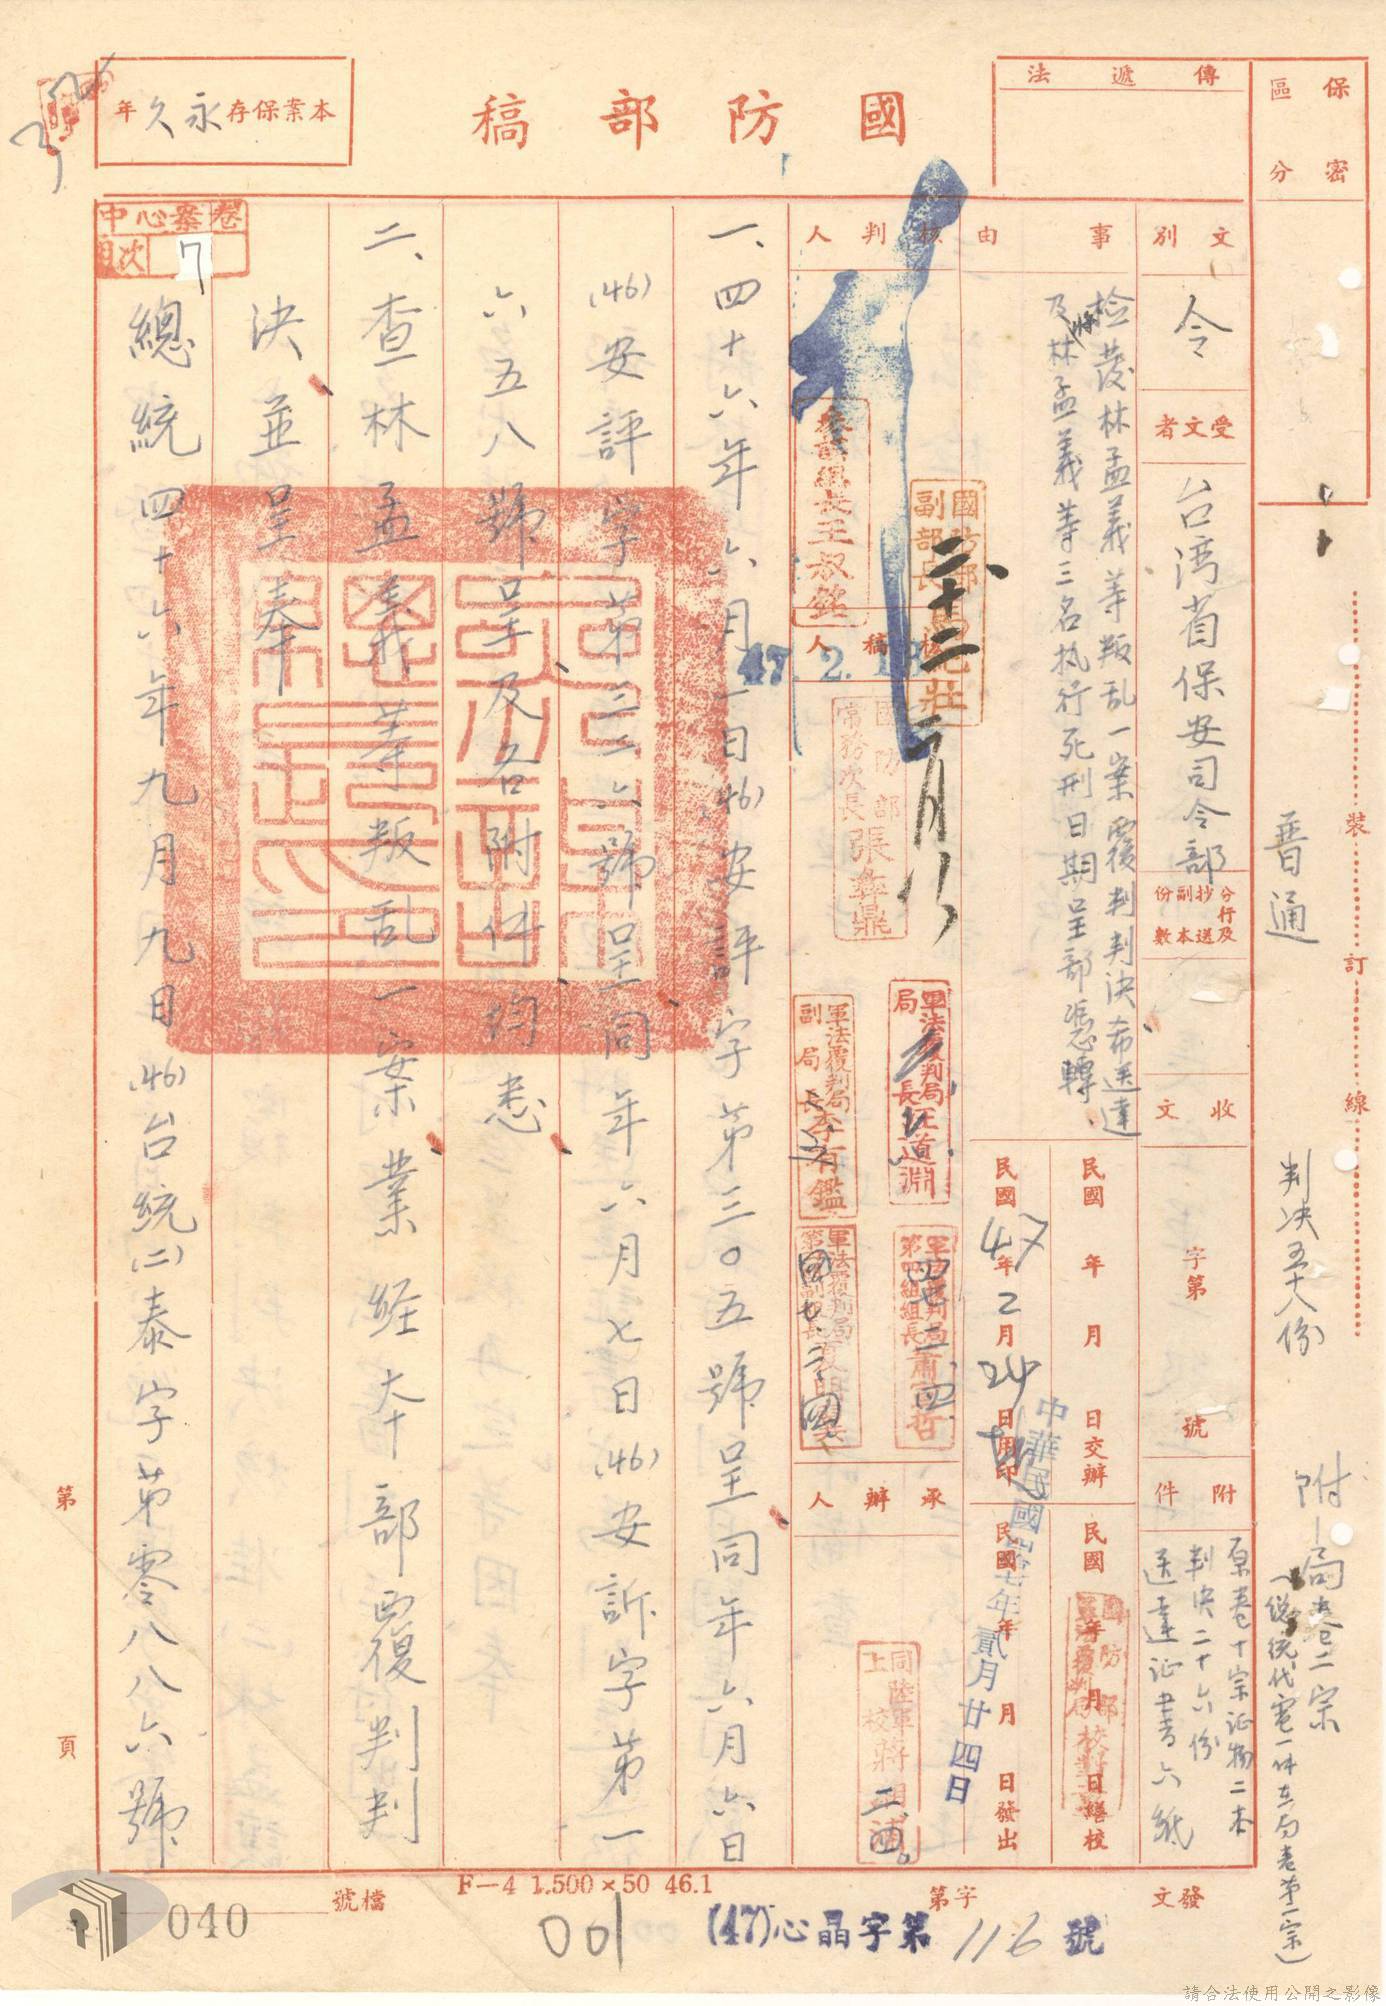 保密
區分
普通
判決五十八份
附
局卷二宗
(總統代電一件在局卷第一宗)
裝訂線
國防部稿
傳遞法
本業保存永久年
中心案卷
目次 7
文別
令
受文者
台湾省保安司令部
分行及抄送副本份數
收文
字第
號
附件
原卷十宗证物二本
判決二十六份
送達证書六紙
事由
检發林孟義等叛乱一案覆判判決希送達
及將林孟義等三名执行死刑日期呈部憑轉
民國 年 月 日交辦
民國 年 月 日繕校
民國47年2月24日用印
民國 年 月 日發出
中華民國四十七年貳月廿四日
核判人
國防部副部長馬紀壯
二十二
二月
參謀總長王叔銘
47.2.
核稿人
國防部常務次長張彝鼎
軍法覆判局局長汪道淵
軍法覆判局副局長李有鑑
軍法覆判局第四組組長蕭
軍法覆判局第四組副組長夏
承辦人
同陸軍上校蔣
一、四十六年六月一日(46)安評字第三〇五號呈同年六月六日
(46)安評字第三三六號呈同年六月七日(46)安訴字第一
六五八號呈及各附件均悉
二、查林孟義等叛乱一案業経本部覆判判
決並呈奉
總統四十六年九月九日(46)台統(二)泰字第零八八六號
第 頁
F—4 1.500×50 46.1
檔號
040
001
發文
字第
(47)心晶字第116號
請合法使用公開之影像